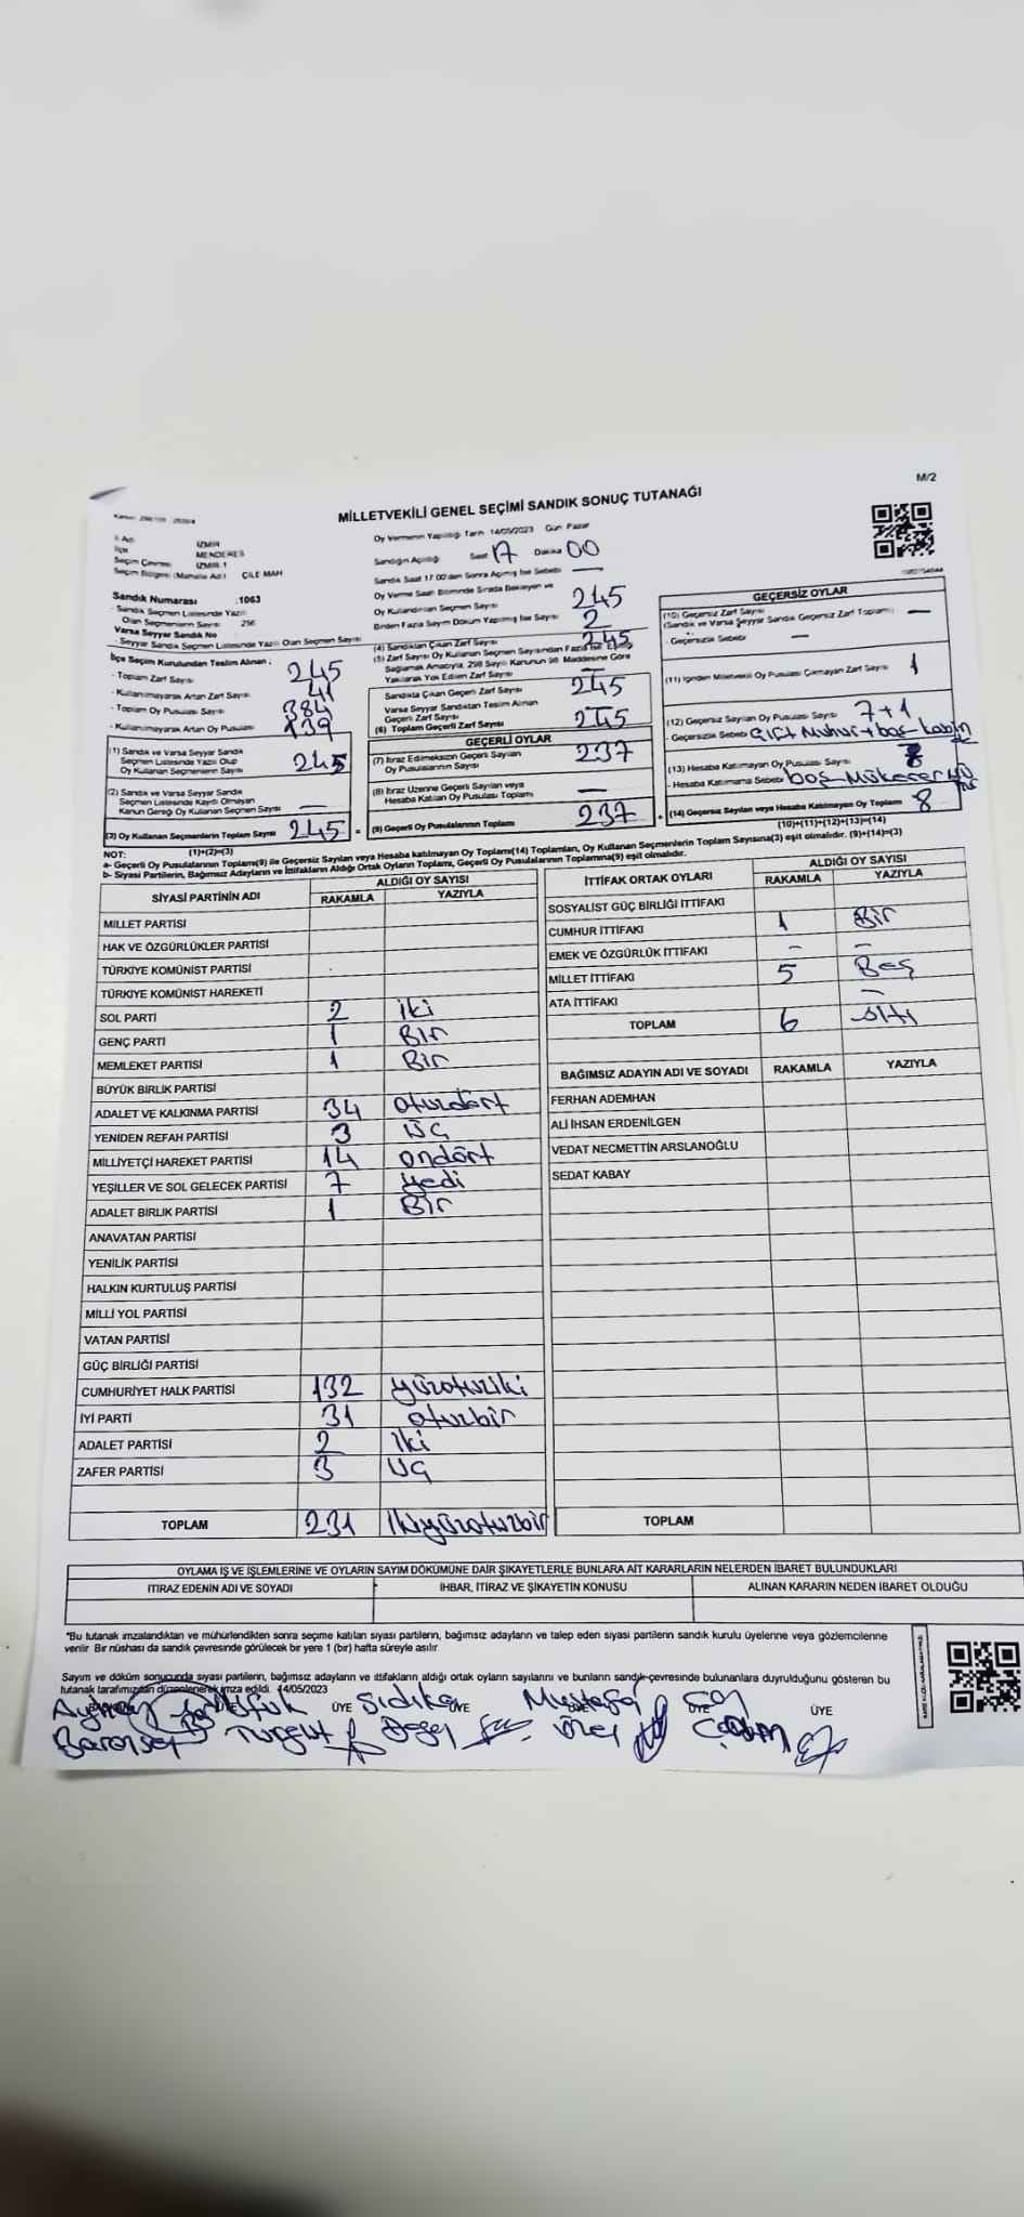 M/2
MİLLETVEKİLİ GENEL SEÇİMİ SANDIK SONUÇ TUTANAĞI
İZMİR
İlçe MENDERES
Seçim Çevresi İZMİR 1
Seçim Bölgesi (Mahalle Adı) ÇİLE MAH
Oy Vermenin Yapıldığı Tarih 14/05/2023 Gün Pazar
Sandığın Açılışı Saat 17 Dakika 00
Sandık Saat 17 00'dan Sonra Açılmış İse Sebebi —
Oy Verme Saati Bitiminde Sırada Bekleyen ve
Oy Kullandırılan Seçmen Sayısı 245
Birden Fazla Sayım Döküm Yapılmış İse Sayısı 2
Sandık Numarası :1063
- Sandık Seçmen Listesinde Yazılı
Olan Seçmenlerin Sayısı 256
Varsa Seyyar Sandık No
- Seyyar Sandık Seçmen Listesinde Yazılı Olan Seçmen Sayısı
İlçe Seçim Kurulundan Teslim Alınan ;
- Toplam Zarf Sayısı 245
- Kullanılmayarak Artan Zarf Sayısı 41
- Toplam Oy Pusulası Sayısı 384
- Kullanılmayarak Artan Oy Pusulası 139
(1) Sandık ve Varsa Seyyar Sandık
Seçmen Listesinde Yazılı Olup
Oy Kullanan Seçmenlerin Sayısı 245
(2) Sandık ve Varsa Seyyar Sandık
Seçmen Listesinde Kayıtlı Olmayan
Kanun Gereği Oy Kullanan Seçmen Sayısı —
(3) Oy Kullanan Seçmenlerin Toplam Sayısı 245
(1)+(2)=(3)
(4) Sandıktan Çıkan Zarf Sayısı 245
(5) Zarf Sayısı Oy Kullanan Seçmen Sayısından Fazla İse Eşitliği
Sağlamak Amacıyla, 298 Sayılı Kanunun 98. Maddesine Göre
Yakılarak Yok Edilen Zarf Sayısı —
Sandıkta Çıkan Geçerli Zarf Sayısı 245
Varsa Seyyar Sandıktan Teslim Alınan
Geçerli Zarf Sayısı
(6) Toplam Geçerli Zarf Sayısı 245
GEÇERLİ OYLAR
(7) İtiraz Edilmeksizin Geçerli Sayılan
Oy Pusulalarının Sayısı 237
(8) İtiraz Üzerine Geçerli Sayılan veya
Hesaba Katılan Oy Pusulası Toplamı —
(9) Geçerli Oy Pusulalarının Toplamı 237
GEÇERSİZ OYLAR
(10) Geçersiz Zarf Sayısı
(Sandık ve Varsa Seyyar Sandık Geçersiz Zarf Toplamı) —
- Geçersizlik Sebebi —
(11) İçinden Milletvekili Oy Pusulası Çıkmayan Zarf Sayısı 1
(12) Geçersiz Sayılan Oy Pusulası Sayısı 7+1
- Geçersizlik Sebebi Çift Mühür + boş
(13) Hesaba Katılmayan Oy Pusulası Sayısı
- Hesaba Katılmama Sebebi boş
(14) Geçersiz Sayılan veya Hesaba Katılmayan Oy Toplamı 8
(10)+(11)+(12)+(13)=(14)
NOT:
a- Geçerli Oy Pusulalarının Toplamı(9) ile Geçersiz Sayılan veya Hesaba katılmayan Oy Toplamı(14) Toplamları, Oy Kullanan Seçmenlerin Toplam Sayısına(3) eşit olmalıdır. (9)+(14)=(3)
b- Siyasi Partilerin, Bağımsız Adayların ve İttifakların Aldığı Ortak Oyların Toplamı, Geçerli Oy Pusulalarının Toplamına(9) eşit olmalıdır.
SİYASİ PARTİNİN ADI ALDIĞI OY SAYISI
RAKAMLA YAZIYLA
MİLLET PARTİSİ
HAK VE ÖZGÜRLÜKLER PARTİSİ
TÜRKİYE KOMÜNİST PARTİSİ
TÜRKİYE KOMÜNİST HAREKETİ
SOL PARTİ 2 iki
GENÇ PARTİ 1 Bir
MEMLEKET PARTİSİ 1 Bir
BÜYÜK BİRLİK PARTİSİ
ADALET VE KALKINMA PARTİSİ 34 oturdört
YENİDEN REFAH PARTİSİ 3 ÜÇ
MİLLİYETÇİ HAREKET PARTİSİ 14 ondört
YEŞİLLER VE SOL GELECEK PARTİSİ 7 yedi
ADALET BİRLİK PARTİSİ 1 Bir
ANAVATAN PARTİSİ
YENİLİK PARTİSİ
HALKIN KURTULUŞ PARTİSİ
MİLLİ YOL PARTİSİ
VATAN PARTİSİ
GÜÇ BİRLİĞİ PARTİSİ
CUMHURİYET HALK PARTİSİ 132 yüzoturiki
İYİ PARTİ 31 oturbir
ADALET PARTİSİ 2 iki
ZAFER PARTİSİ 3 ÜÇ
TOPLAM 231 ikiyüzoturbir
İTTİFAK ORTAK OYLARI ALDIĞI OY SAYISI
RAKAMLA YAZIYLA
SOSYALİST GÜÇ BİRLİĞİ İTTİFAKI
CUMHUR İTTİFAKI 1 Bir
EMEK VE ÖZGÜRLÜK İTTİFAKI — —
MİLLET İTTİFAKI 5 Beş
ATA İTTİFAKI —
TOPLAM 6 Altı
BAĞIMSIZ ADAYIN ADI VE SOYADI RAKAMLA YAZIYLA
FERHAN ADEMHAN
ALİ İHSAN ERDENİLGEN
VEDAT NECMETTİN ARSLANOĞLU
SEDAT KABAY
TOPLAM
OYLAMA İŞ VE İŞLEMLERİNE VE OYLARIN SAYIM DÖKÜMÜNE DAİR ŞİKAYETLERLE BUNLARA AİT KARARLARIN NELERDEN İBARET BULUNDUKLARI
İTİRAZ EDENİN ADI VE SOYADI İHBAR, İTİRAZ VE ŞİKAYETİN KONUSU ALINAN KARARIN NEDEN İBARET OLDUĞU
*Bu tutanak imzalandıktan ve mühürlendikten sonra seçime katılan siyasi partilerin, bağımsız adayların ve talep eden siyasi partilerin sandık kurulu üyelerine veya gözlemcilerine
verilir. Bir nüshası da sandık çevresinde görülecek bir yere 1 (bir) hafta süreyle asılır.
Sayım ve döküm sonucunda siyasi partilerin, bağımsız adayların ve ittifakların aldığı ortak oyların sayılarını ve bunların sandık çevresinde bulunanlara duyrulduğunu gösteren bu
tutanak tarafımızdan düzenlenerek imza edildi. 14/05/2023
ÜYE Sıdıka ÜYE Mustafa ÜYE ÜYE
Turgut